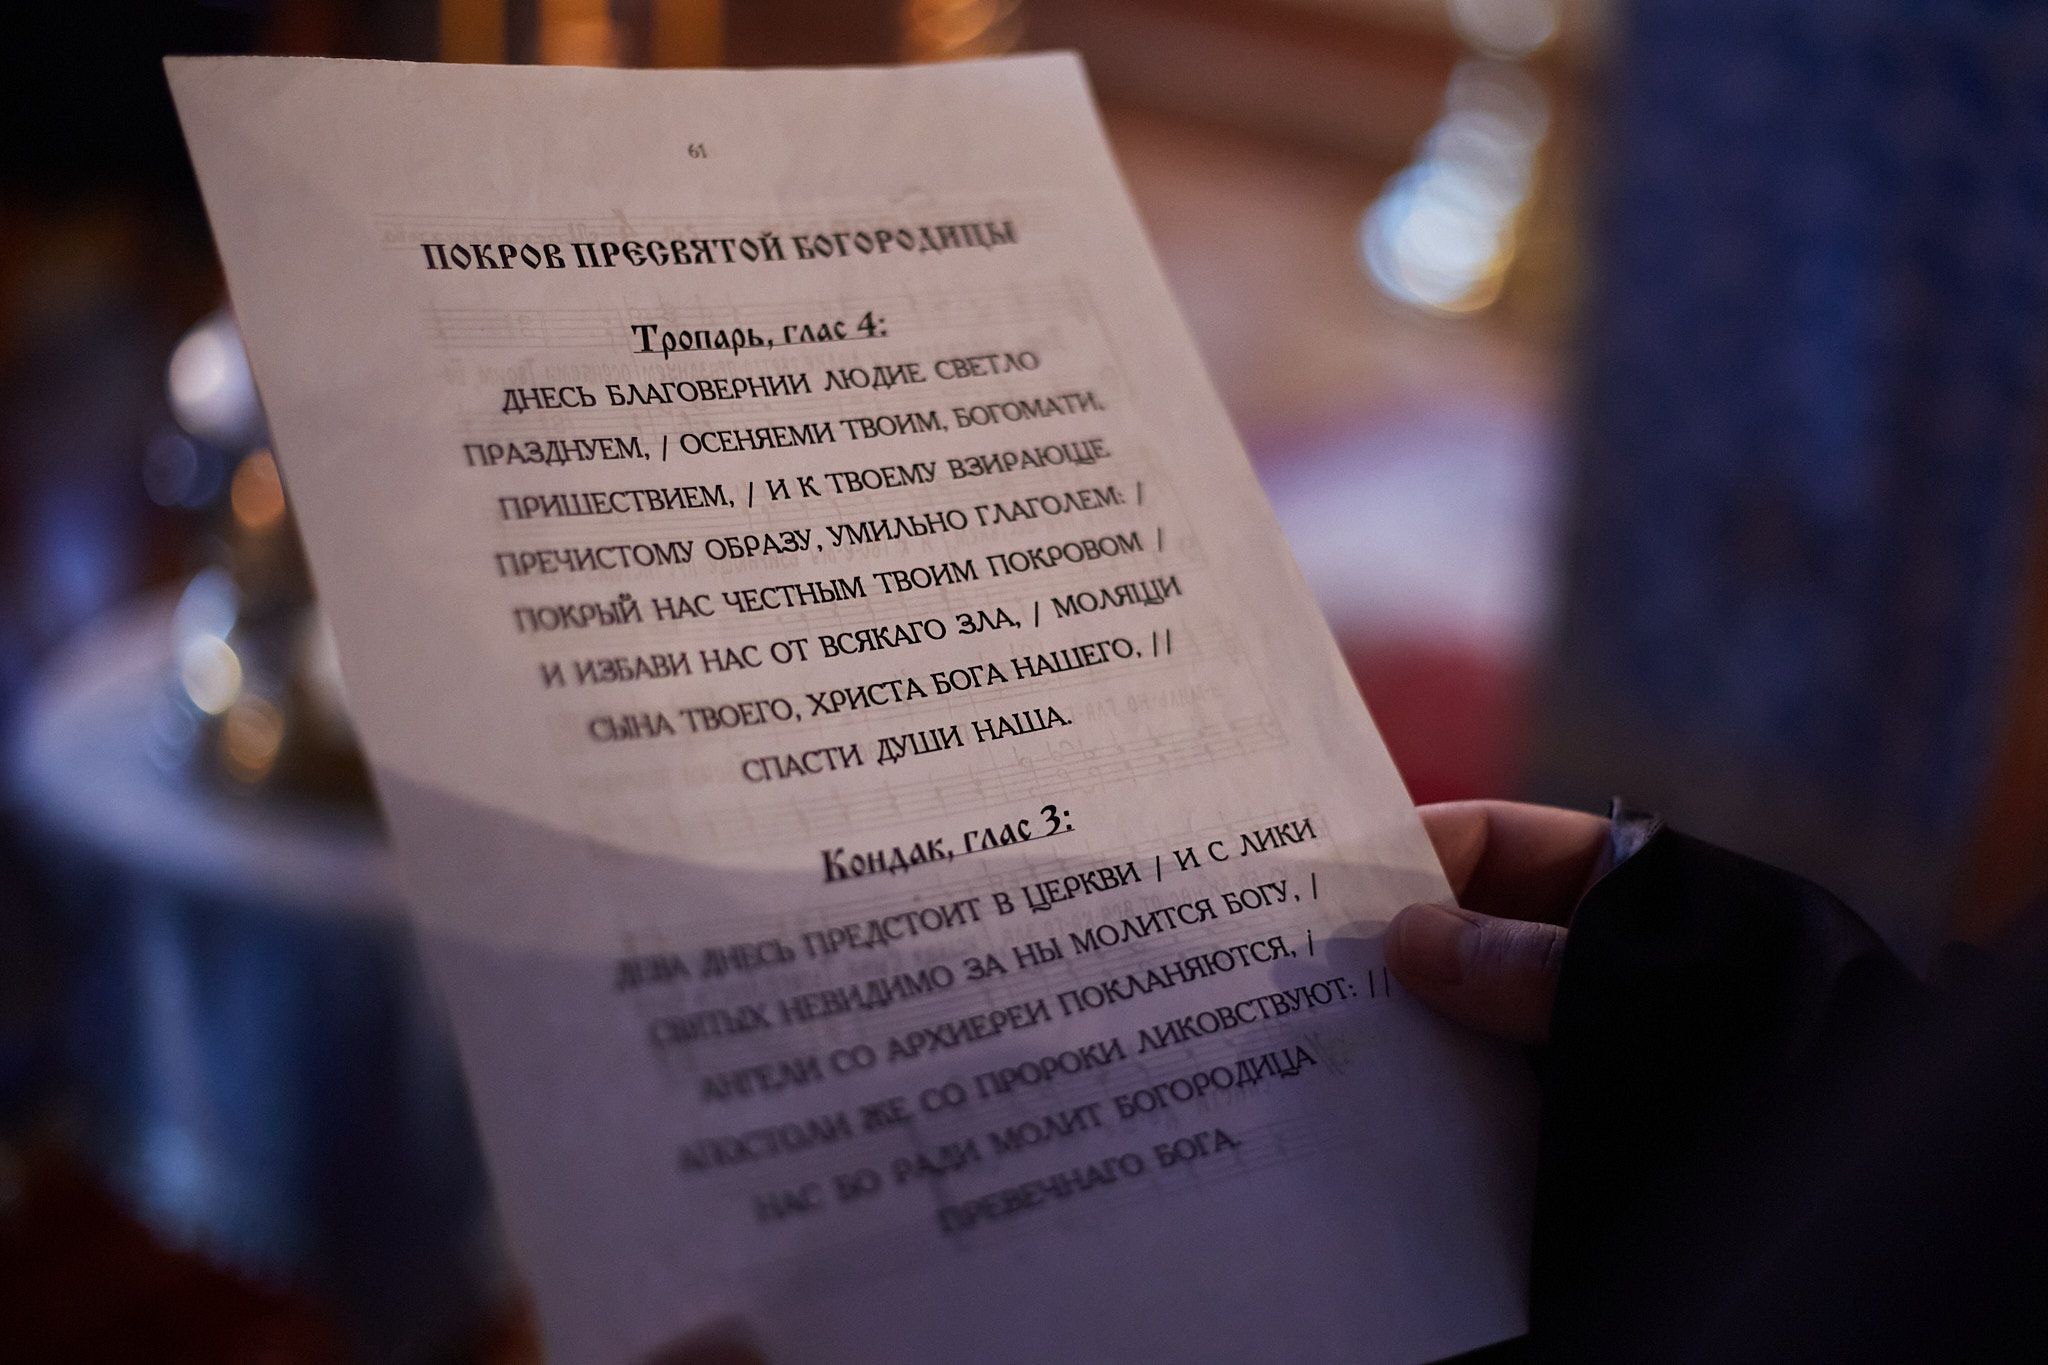 61
ПОКРОВ ПРЕСВЯТОЙ БОГОРОДИЦЫ
Тропарь, глас 4:
ДНЕСЬ БЛАГОВЕРНИИ ЛЮДИЕ СВЕТЛО
ПРАЗДНУЕМ, / ОСЕНЯЕМИ ТВОИМ, БОГОМАТИ,
ПРИШЕСТВИЕМ, / И К ТВОЕМУ ВЗИРАЮЩЕ
ПРЕЧИСТОМУ ОБРАЗУ, УМИЛЬНО ГЛАГОЛЕМ: /
ПОКРЫЙ НАС ЧЕСТНЫМ ТВОИМ ПОКРОВОМ /
И ИЗБАВИ НАС ОТ ВСЯКАГО ЗЛА, / МОЛЯЩИ
СЫНА ТВОЕГО, ХРИСТА БОГА НАШЕГО, //
СПАСТИ ДУШИ НАША.
Кондак, глас 3:
ДЕВА ДНЕСЬ ПРЕДСТОИТ В ЦЕРКВИ / И С ЛИКИ
СВЯТЫХ НЕВИДИМО ЗА НЫ МОЛИТСЯ БОГУ, /
АНГЕЛИ СО АРХИЕРЕИ ПОКЛАНЯЮТСЯ, /
АПОСТОЛИ ЖЕ СО ПРОРОКИ ЛИКОВСТВУЮТ: //
НАС БО РАДИ МОЛИТ БОГОРОДИЦА
ПРЕВЕЧНАГО БОГА.